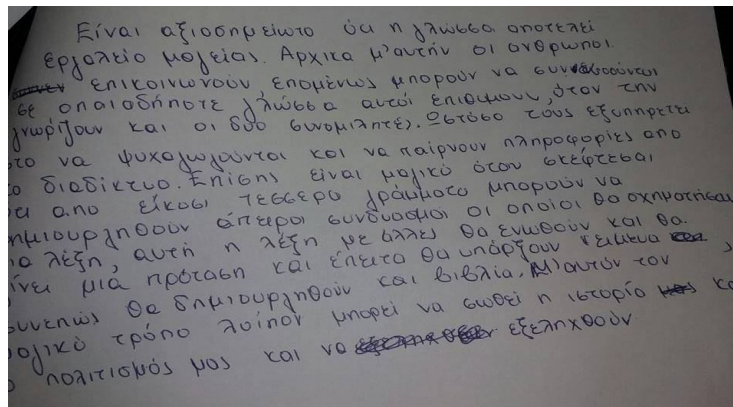 Είναι αξιοσημείωτο ότι η γλώσσα αποτελεί
εργαλείο μαγείας. Αρχικα μ'αυτήν οι ανθρωποι
επικοινωνούν, επομένως μπορούν να
σε οποιαδήποτε γλώσσα αυτοί επιθυμουν, όταν την
γνωρίζουν και οι δυο συνομιλητές. Ωστόσο τους εξυπηρετεί
στο να ψυχαγωγούνται και να παίρνουν πληροφορίες απο
το διαδίκτυο. Επίσης είναι μαγικό όταν σκέφτεσαι
οτι απο εικοσι τεσσερα γράμματα μπορούν να
δημιουργηθούν άπειροι συνδυασμοι οι οποίοι θα σχηματήσουν
μια λέξη, αυτή η λέξη με άλλες θα ενωθούν και θα
γίνει μιά πρόταση και έπειτα θα υπάρξουν κειμενα
συνεπώς θα δημιουργηθούν και βιβλία. Μ'αυτόν τον
μαγικό τρόπο λοίπον μπορεί να σωθεί η ιστορία και
ο πολιτισμός μας και να εξεληχθούν.